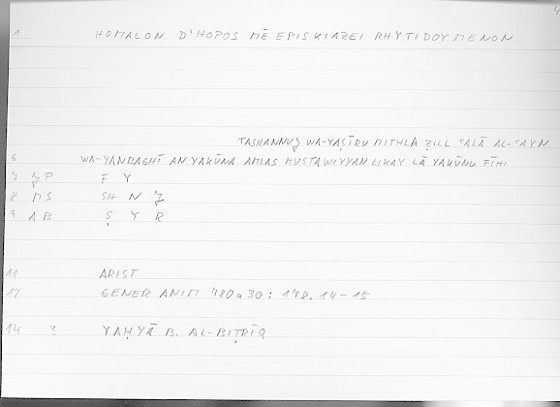 1 HOMALON D'HOPOS MĒ EPISKIAZEI RHYTIDOYMENON
TASHANNUJ WA-YAṢĪRU MITHLA ẒILL ʿALĀ AL-ʿAYN
6 WA-YANBAGHĪ AN YAKŪNA AMLAS MUSTAWIYYAN LIKAY LĀ YAKŪNU FĪHI
7 JP F Y
8 MS SH N J
9 AB Ṣ Y R
11 ARIST
12 GENER ANIM 780a30: 178.14-15
14 ? YAḤYĀ B. AL-BIṬRĪQ